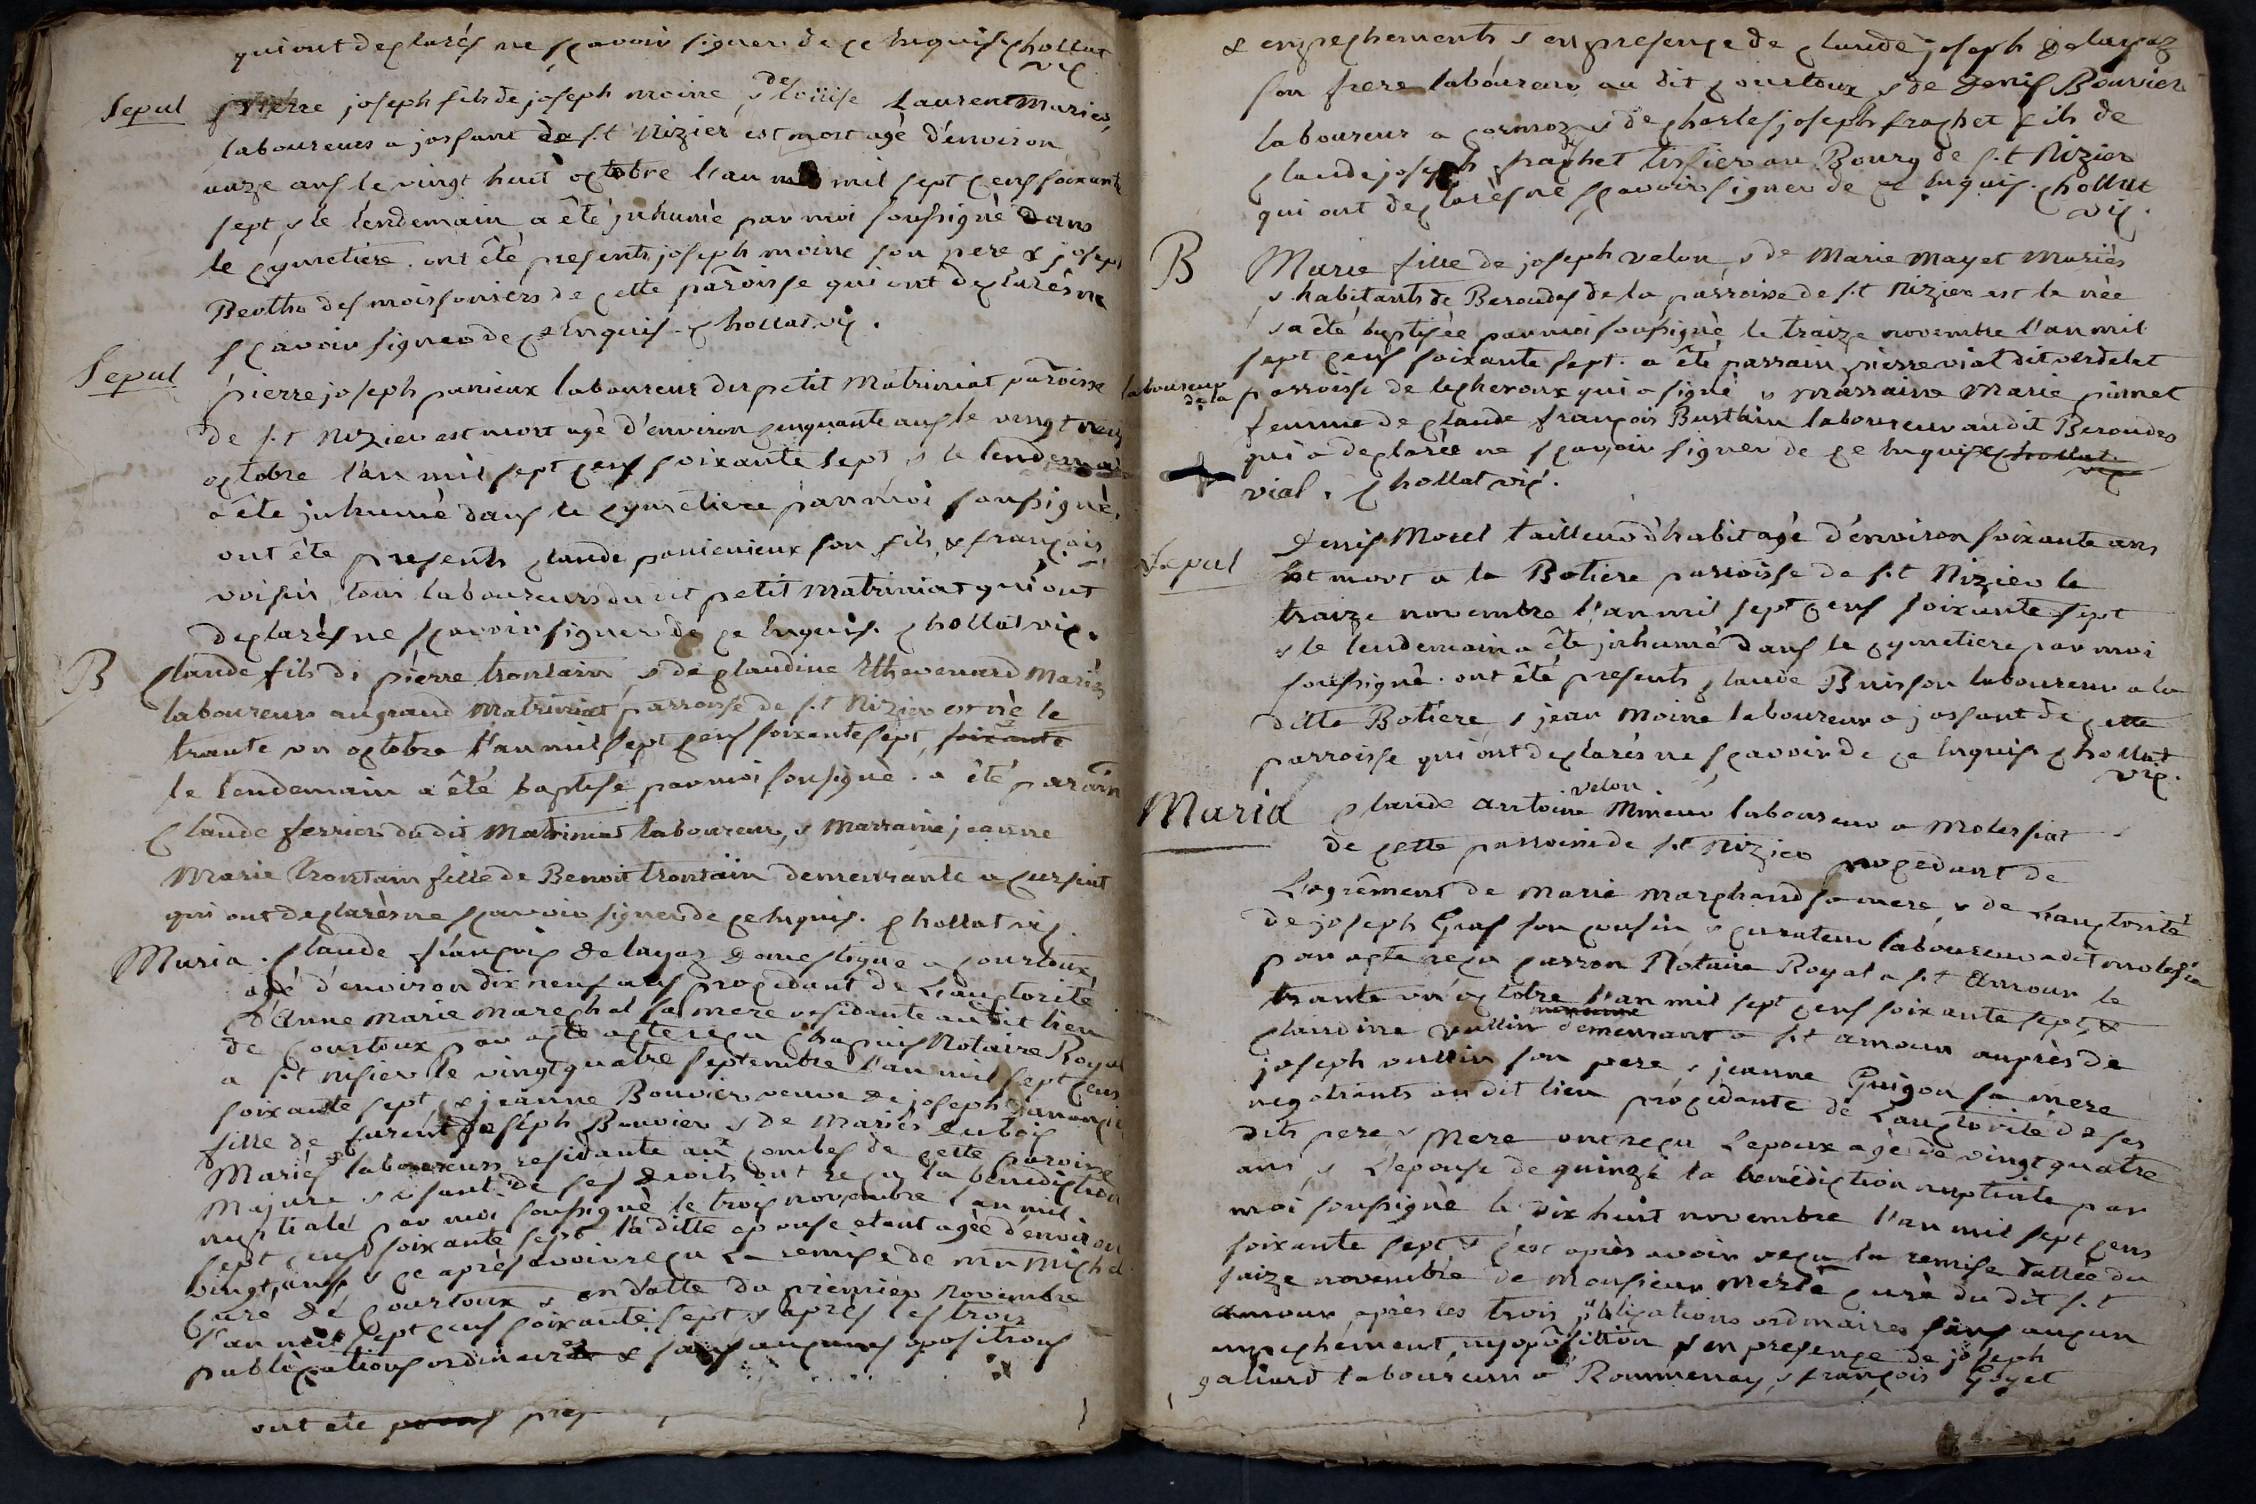 qui ont declarés ne scavoir signer de ce enquis chollat
vic
Sepul pierre joseph fils de joseph moine & de Loüise Laurent Mariés,
laboureurs a jossant de s.t Nizier est mort agé d'environ
onze ans le vingt huit octobre l'an mil sept cens soixante
sept, & le lendemain a êté inhumé par moi soussigné dans
le cymetiere. ont êté presents joseph moine son pere & joseph
Bertho des moissoniers de cette paroisse qui ont declarés ne
scavoir signer de ce Enquis. chollat vic.
Sepul pierre joseph panieux laboureur du petit Matriniat paroisse
de s.t Nizier est mort agé d'environ cinquante ans le vingt neuf
octobre l'an mil sept cens soixante sept & le lendemain
a êté inhumé dans le cymetiere par moi soussigné,
ont êté presents claude panieux son fils, & françois
voisin, tous laboureurs du dit petit Matriniat qui ont
declarés ne scavoir signer de ce Enquis. chollat vic.
B Claude fils de pierre trontain, & de claudine Ethevenard Mariés
laboureurs au grand Matriniat parroisse de s.t Nizier est né le
trante un octobre l'an mil sept cens soixante sept, soixante
le lendemain a êté baptisé par moi sousigné. a êté parain
Claude ferrier du dit Matriniat laboureur, & Marraine jeanne
Marie trontain fille de Benoit trontain demeurante a curciat
qui ont declarés ne scavoir signer de ce Enquis. chollat vic.
Maria. Claude françois Delayaz domestique a courtoux,
agé d'environ dix neuf ans procedant de L'auctorité
d'Anne Marie Marechal sa mere residante au dit lieu
de courtoux par acte acte reçu chapuis Notaire Royal
a s.t nisier le vingt quatre septembre l'an mil sept cens
soixante sept, & jeanne Bouvier veuve de joseph
fille de furent joseph Bouvier & de Mariés Dubois
Mariés laboureurs residante aux combes de cette paroisse
Majure & usante de ses droits ont reçu la benediction
nuptiale par moi soussigné le trois novembre l'an mil
sept cens soixante sept la ditte epouse etant agée d'environ
vingt, ans, & ce aprés avoir reçu La remise de mr Michel
curé de courtoux & en datte du premier novembre
l'an mil sept cens soixante sept & aprés les trois
publications ordinaires & sans aucunes opositions
ont ete pres
& empechements & en presence de claude joseph Delayaz
son frere laboureur au dit courtoux & de denis Bouvier
laboureur a cormoz, & de charles joseph frachet fils de
claude joseph frachet tissier au Bourg de s.t Nizier
qui ont declarés ne scavoir signer de ce Enquis. chollat
vic.
B Marie fille de joseph velon, & de Marie Mayet Mariés
& habitants de Beroudes de la parroisse de s.t Nizier est la née
& a êté baptisée par moi soussigné le traize novembre l'an mil
sept cens soixante sept. a êté parrain pierre vial dit verdelet
laboureur de la parroisse de lescheroux qui a signé & marraine Marie
femme de claude françois Bustain laboureur au dit Beroudes
qui a declarée ne scavoir signer de ce Enquis chollat
vic
vial. chollat vic.
Sepul Denis Morel tailleur d'habit agé d'environ soixante ans
est mort a la Botiere parroisse de s.t Nizier le
traize novembre l'an mil sept cens soixante sept
& le lendemain a êté inhumé dans le cymetiere par moi
soussigné. ont êté presents claude Buisson laboureur a la
ditte Botiere & jean Moine laboureur a jossant de cette
parroisse qui ont declarés ne scavoir de ce Enquis chollat
vic.
Maria Claude Antoine velon Mineur laboureur a Molessiat
de cette parroisse de s.t Nizier procedant de
L'agrêment de Marie Marchand sa mere, & de L'auctorité
de joseph Gras son cousin & curateur laboureur a dit molessia
par acte reçu carron Notaire Royal a s.t Amour le
trante un octobre l'an mil sept cens soixante sept, &
claudine vullin demeurant a s.t amour auprès de
joseph vullin son pere & jeanne Guigon sa mere
negotiants au dit lieu procedante de L'auctorité de ses
dits pere & Mere ont reçu Lepoux agé de vingt quatre
ans, & L'epouse de quinze la benédiction nuptiale par
moi soussigné le dix huit novembre l'an mil sept cens
soixante sept & c'est après avoir reçu la remise dattée du
saize novembre de Monsieur Merle curé du dit s.t
amour, après les trois publications ordinaires sans aucun
empechement, ny opôsition & en presence de joseph
galiard laboureur a Rommenay, & françois Goyet